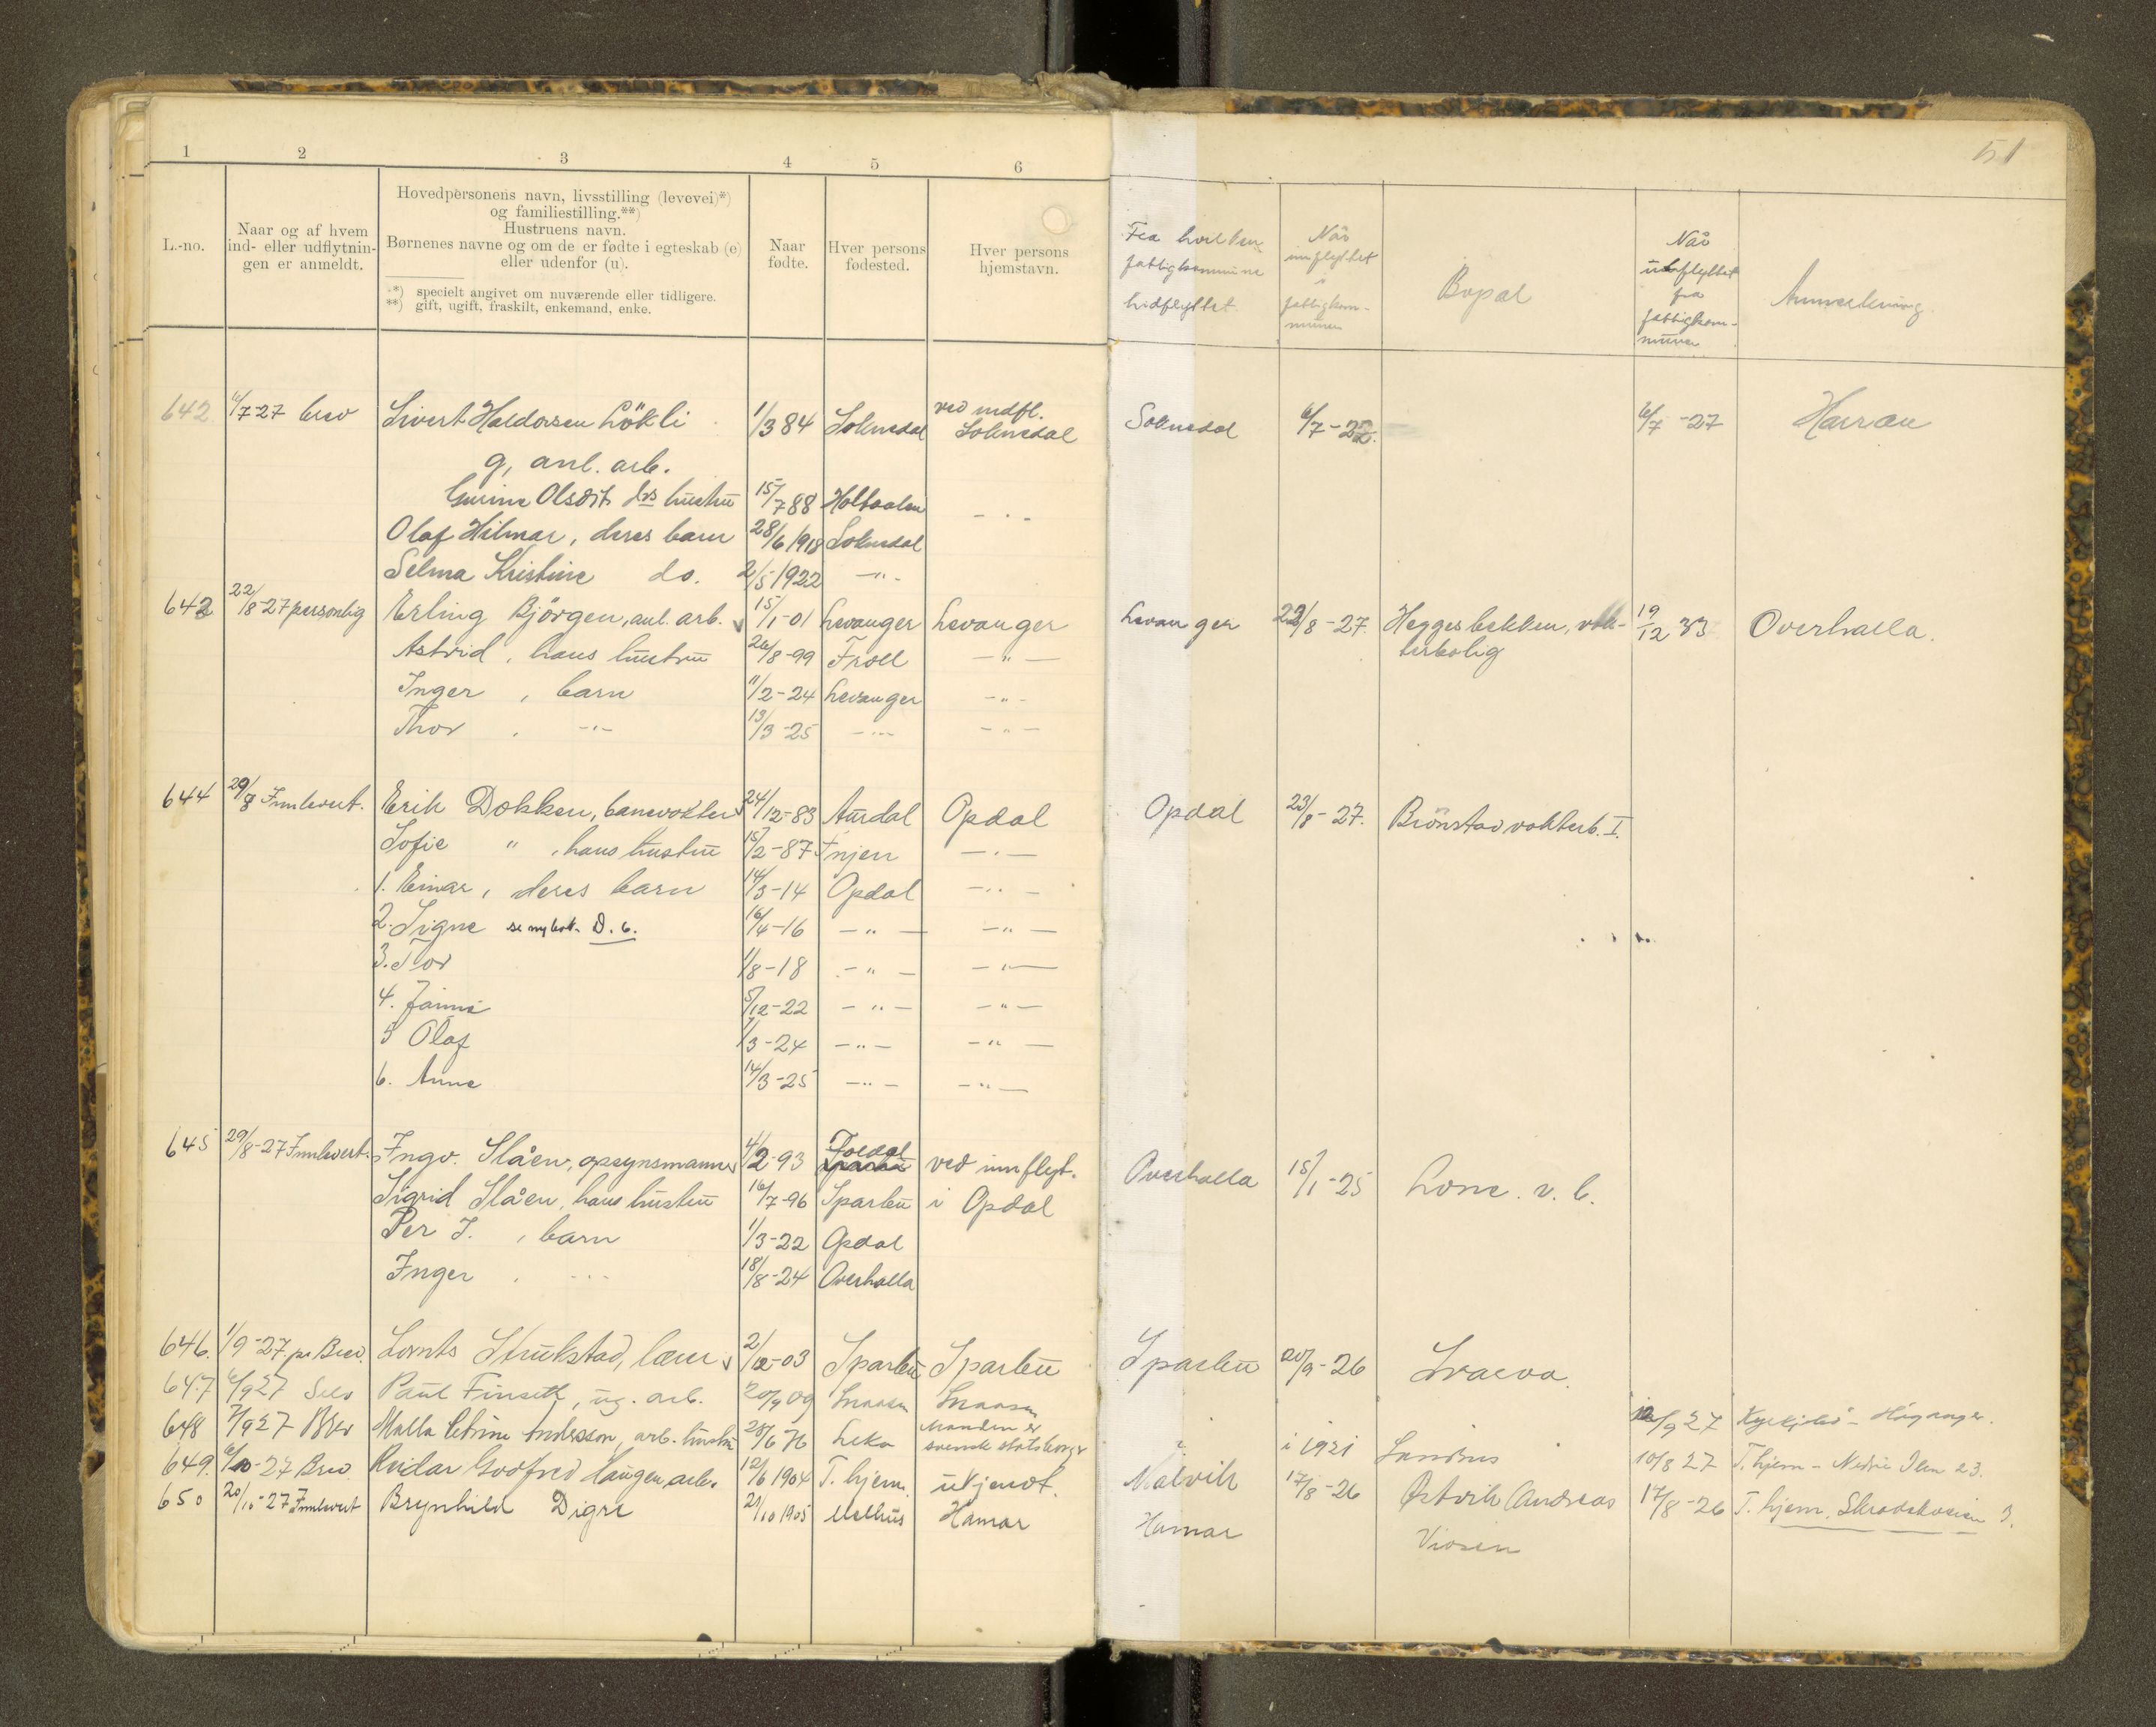 1 2 3 4 5 6
51
L.-no.
Naar og af hvem
ind- eller udflytnin-
gen er anmeldt.
Hovedpersonens navn, livsstilling (levevei)*)
og familiestilling.**)
Hustruens navn.
Børnenes navne og om de er fødte i egteskab (e)
eller udenfor (u).
*) specielt angivet om nuværende eller tidligere.
**) gift, ugift, fraskilt, enkemand, enke.
Naar
fødte.
Hver persons
fødested.
Hver persons
hjemstavn.
Fra hvilken
fattigkommune
hidflyttet
Når
innflyttet
i
fattigkom-
munen
Bopæl
Når
utflyttet
fra
fattigkom-
munen
Anmerkning
642 11/7-27 brev Sivert Haldorsen Lökli 1/3 84 Soknedal ved indfl. Soknedal Soknedal 6/7-27 6/7-27 Harran
g, anl. arb.
Olsdtr ds hustru 15/7 88 Holtaalen - " -
Olaf Hilmar, deres barn 28/6 1918 Soknedal
Selma Kristine do. 2/5 1922 - " -
642 22/8-27 personlig Erling Björgen, anl. arb. 15/1-01 Levanger Levanger Levanger 22/8-27 Heggesbekken, vok-
terbolig 19/12 33 Overhalla.
Astrid, hans hustru 26/8-99 Frol - " -
Inger, barn 11/2-24 Levanger - " -
Thor, - " - 13/3-25 - " - - " -
644 29/8 Innlevert. Erik Dokken, banevokter 24/12-83 Aurdal Opdal Opdal 23/8-27. Brönstad vokterb. I.
Sofie " , hans hustru 15/2-87 - " -
1. Einar, deres barn 14/3-14 Opdal - " -
2. Signe se ny bok D. 6. 16/4-16 - " - - " -
3. Tor 1/8-18 - " - - " -
4. 5/12-22 - " - - " -
5 Olaf 1/3-24 - " - - " -
6. Anne 14/3-25 - " - - " -
645 29/8-27 Innlevert. Ingv. Slåen, opsynsmann 4/2-93 Foldal Sparbu ved innflyt. Overhalla 15/1-25 Lone. v. b.
Sigrid Slåen, hans hustru 16/7-96 Sparbu i Opdal
Per I., barn 1/3-22 Opdal
Inger, - " - 18/8-24 Overhalla
646. 1/9-27. pr Brev. Lornts Strukstad, lærer 2/12-03 Sparbu Sparbu Sparbu 20/9-26
647 6/9 27 Selv Paul Finseth, ug. arb. 20/9 09 Snaasen Snaasen 12/9 27
648 7/9 27 Brev Malla Andersson, arb. hustru 28/6 76 Leka Manden er
svensk statsborger ? i 1921 10/8 27 T.hjem - Nedre Ilen 23.
649. 6/10-27 Brev Reidar Godfred Haugen, arb. 12/6 1904 T. hjem. ukjendt. Malvik 17/8-26 Østvik Andreas 17/8-26 T. hjem, 3.
650 20/10-27 Innlevert Brynhild Digre 21/10 1905 Melhus Hamar Hamar Viosen